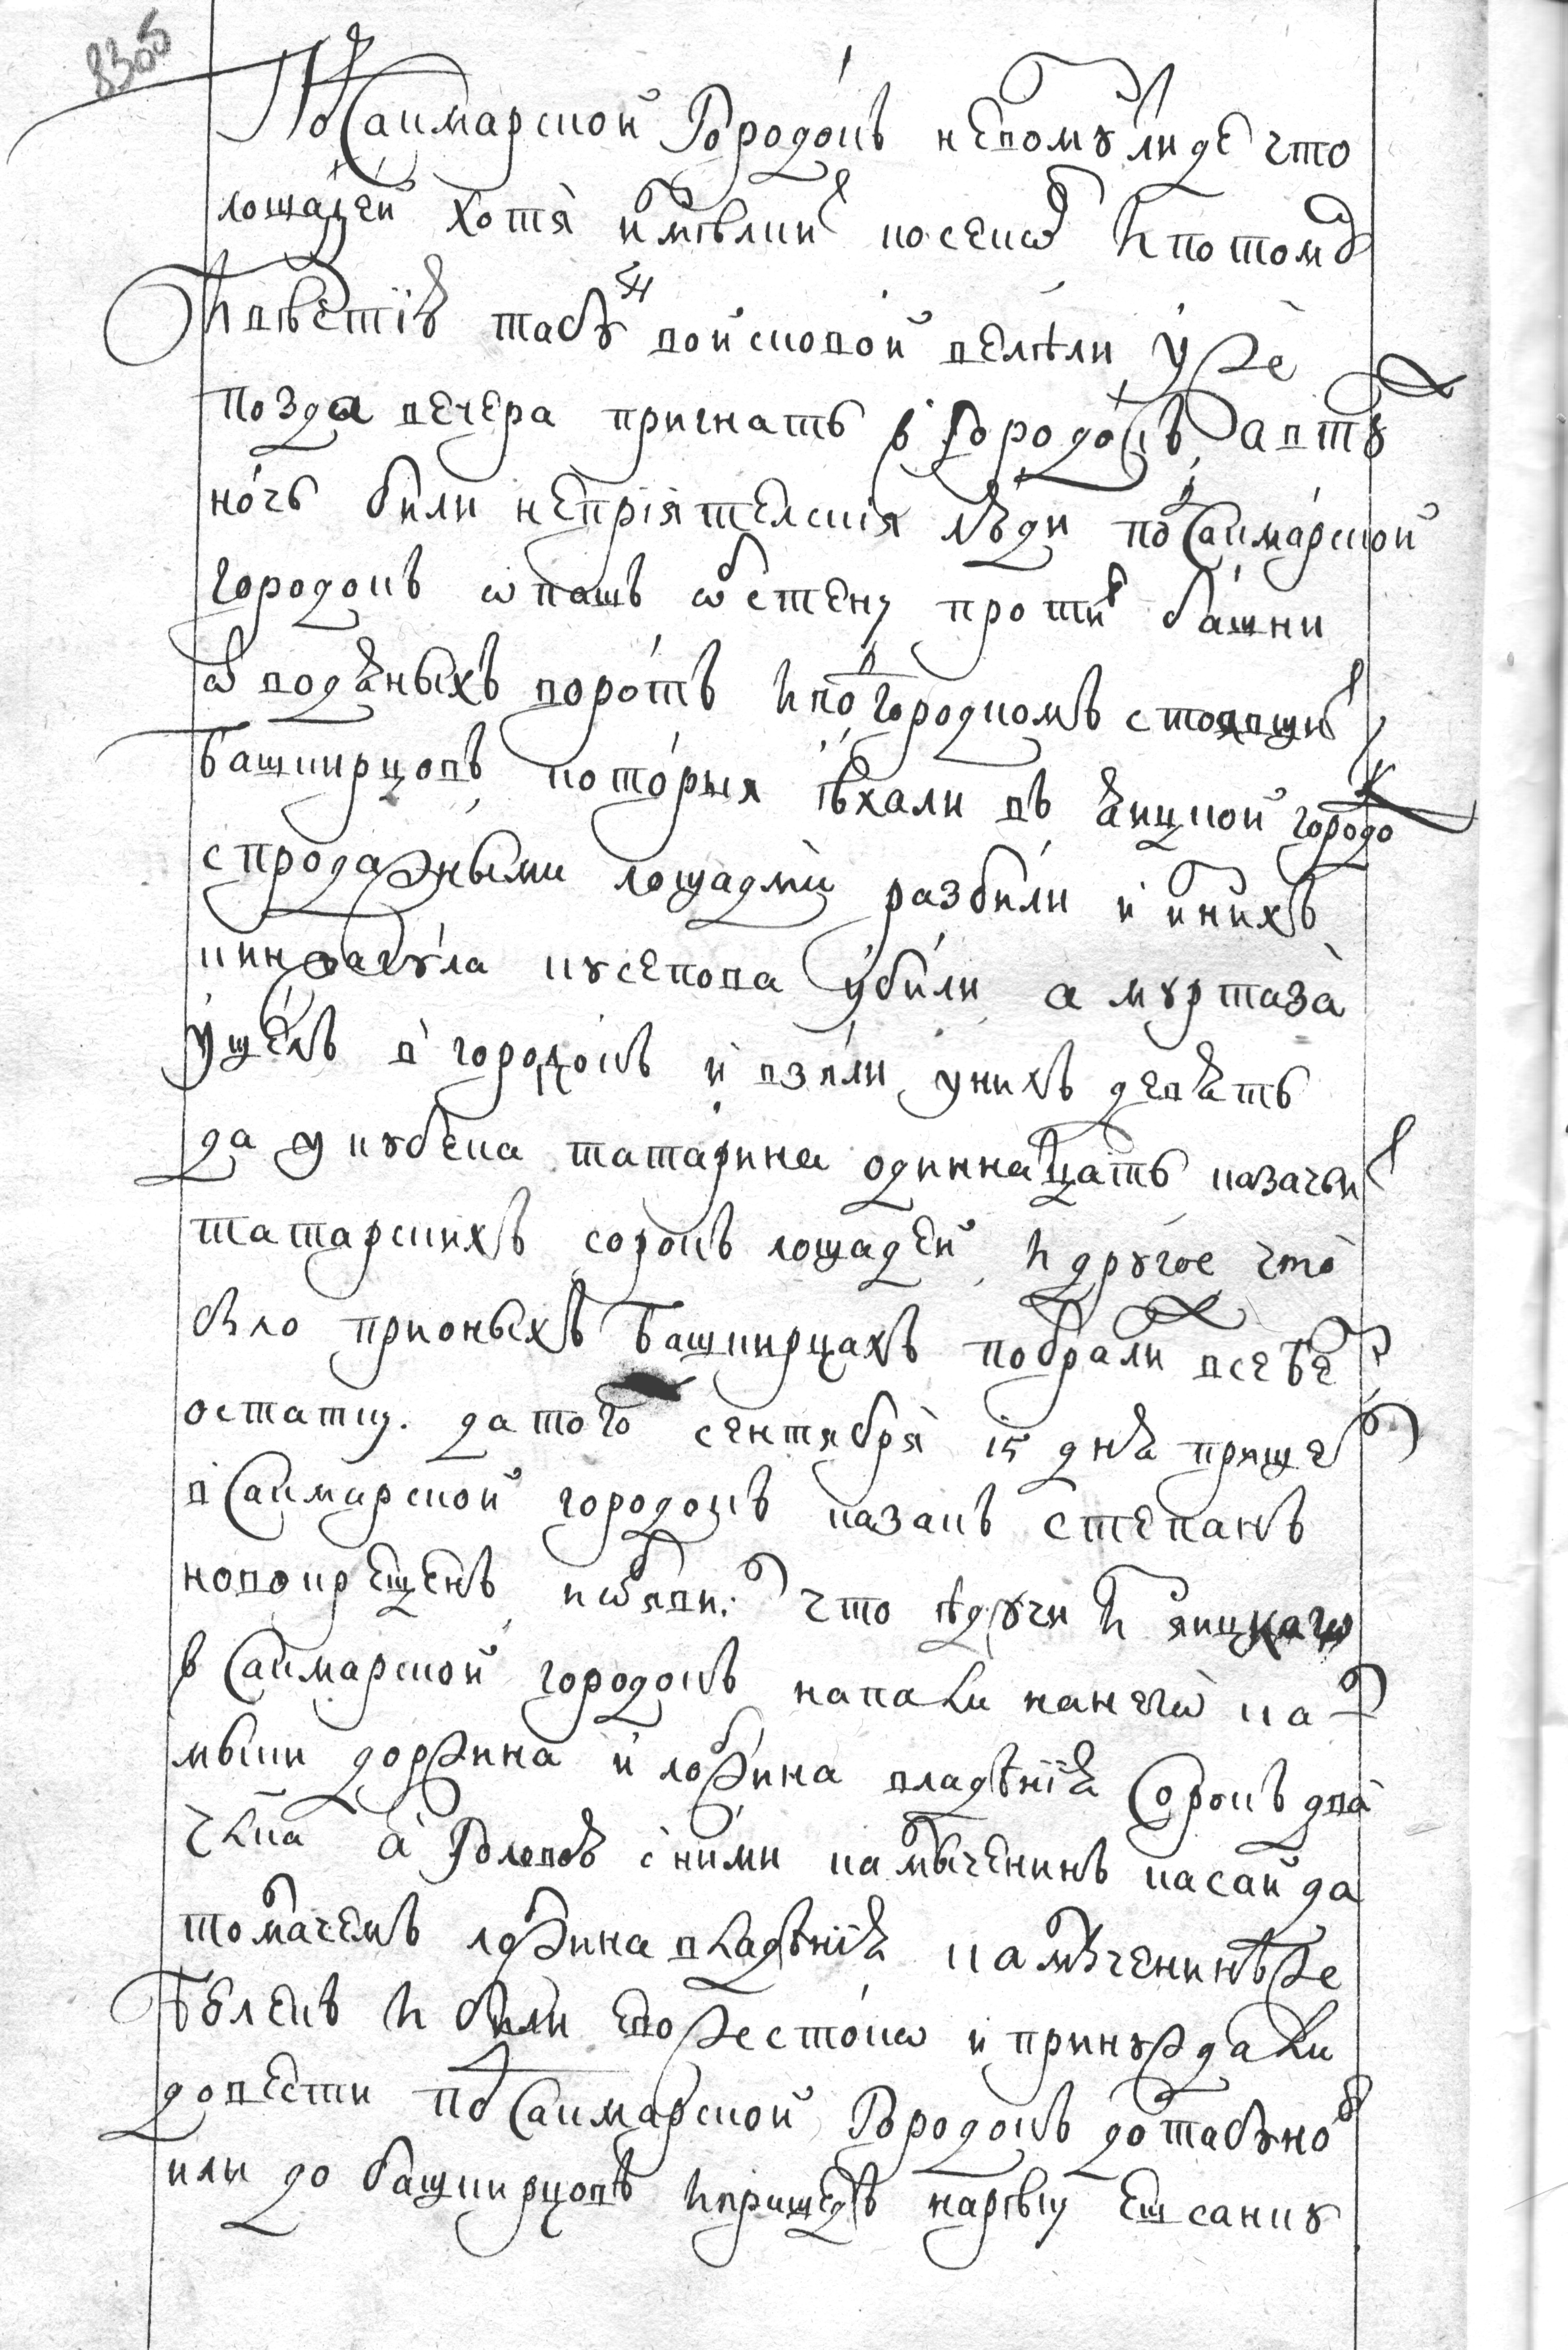 830б
По(д) Сакмарской Городокъ непомулиде что
лошадей хотя имѣлии посеко и потом
Ивѣстiю табун воисковой велѣли уже
позда вечера пригнать в Городокъ, а вту
ночь были непрiятелскiя люди по(д) Сакмарской
городокъ ѡпашъ ѡстену проти(в) башни
ѿ водяныхъ воротъ и по(д) городкомъ стоявши(х)
Башкирцовъ которыя ѣхали въ яицкой городо(к)
с продажными лошадми разбили и иныхъ
кинжагула кусепова убили а муртаза
ушелъ в городокъ и взяли унихъ девять
да у кубека татарина одиннацать казачьи(х)
татарскихъ сорокъ лошадей, и другое что
было прионыхъ Башкирцахъ побрали всебе(з)
остатку. да того сентября 15 дня прише(д)
в Сакмарской городокъ казакъ степанъ
новокрещенъ иѡбяви(л) что ѣдучи и яицкагѡ
в Сакмарской городокъ напали нанегѡ ка(л)
мыки доржина и лобжина владѣнiя Сорокъ два
члка а Головою с ними камыченинъ касай да
томачемъ лобжина владѣнiя камыченинъ же
Бѣлекъ и били ево жестоко и принуждали
довести по(д) Сакмарской Городокъ до табуно(в)
или до башкирцовъ и пришедъ нарѣку ещсанку